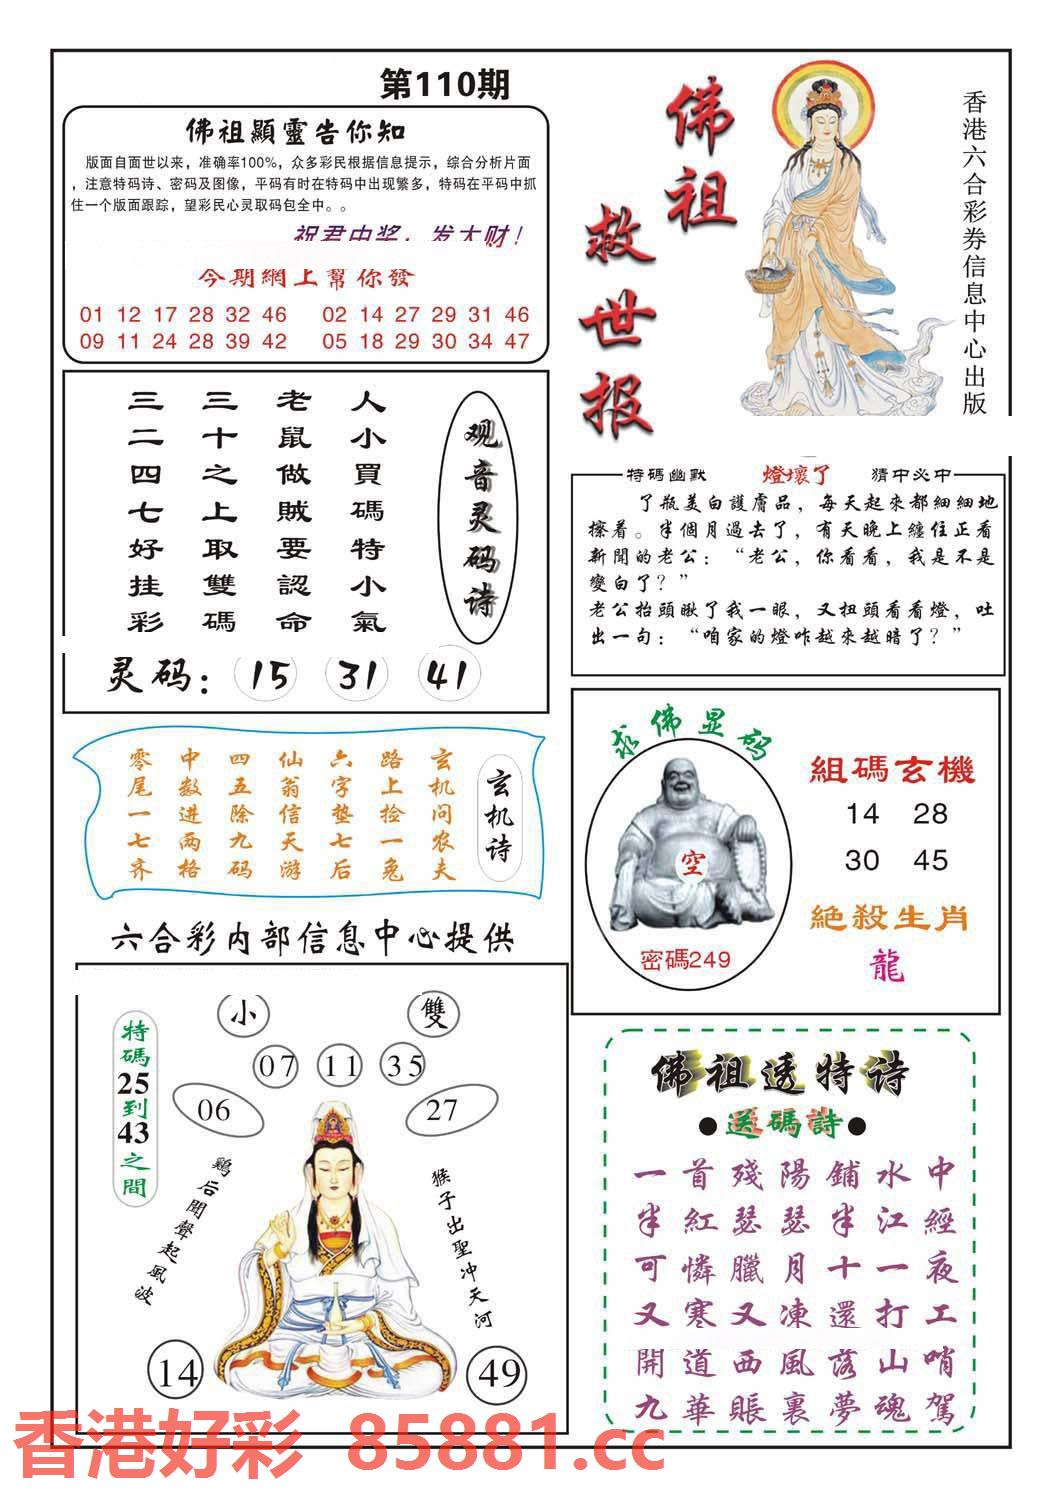 第110期
佛祖顯靈告你知
版面自面世以来，准确率100%，众多彩民根据信息提示，综合分析片面
，注意特码诗、密码及图像，平码有时在特码中出现繁多，特码在平码中抓
住一个版面跟踪，望彩民心灵取码包全中。。
祝君中奖，发大财！
今期網上幫你發
01 12 17 28 32 46 02 14 27 29 31 46
09 11 24 28 39 42 05 18 29 30 34 47
佛祖
救世报
香港六合彩券信息中心出版
观音灵码诗
人小買碼特小氣
老鼠做賊要認命
三十之上取雙碼
三二四七好挂彩
灵码：15 31 41
特碼幽默 燈壞了 猜中必中
了瓶美白護膚品，每天起來都細細地
擦着。半個月過去了，有天晚上纏住正看
新聞的老公：“老公，你看看，我是不是
變白了？”
老公抬頭瞅了我一眼，又扭頭看看燈，吐
出一句：“咱家的燈咋越來越暗了？”
玄机诗
玄机问农夫
路上捡一兔
六字垫七后
仙翁信天游
四五除九码
中数进两格
零尾一七齐
求佛显码
空
密碼249
組碼玄機
14 28
30 45
絕殺生肖
龍
六合彩内部信息中心提供
特碼25到43之間
小 雙
07 11 35
06 27
鷄后聞聲起風波
猴子出聖冲天河
14 49
佛祖透特诗
●送碼詩●
一首殘陽鋪水中
半紅瑟瑟半江經
可憐臘月十一夜
又寒又凍還打工
開道西風落山哨
九華賬裏夢魂駕
香港好彩 85881.cc